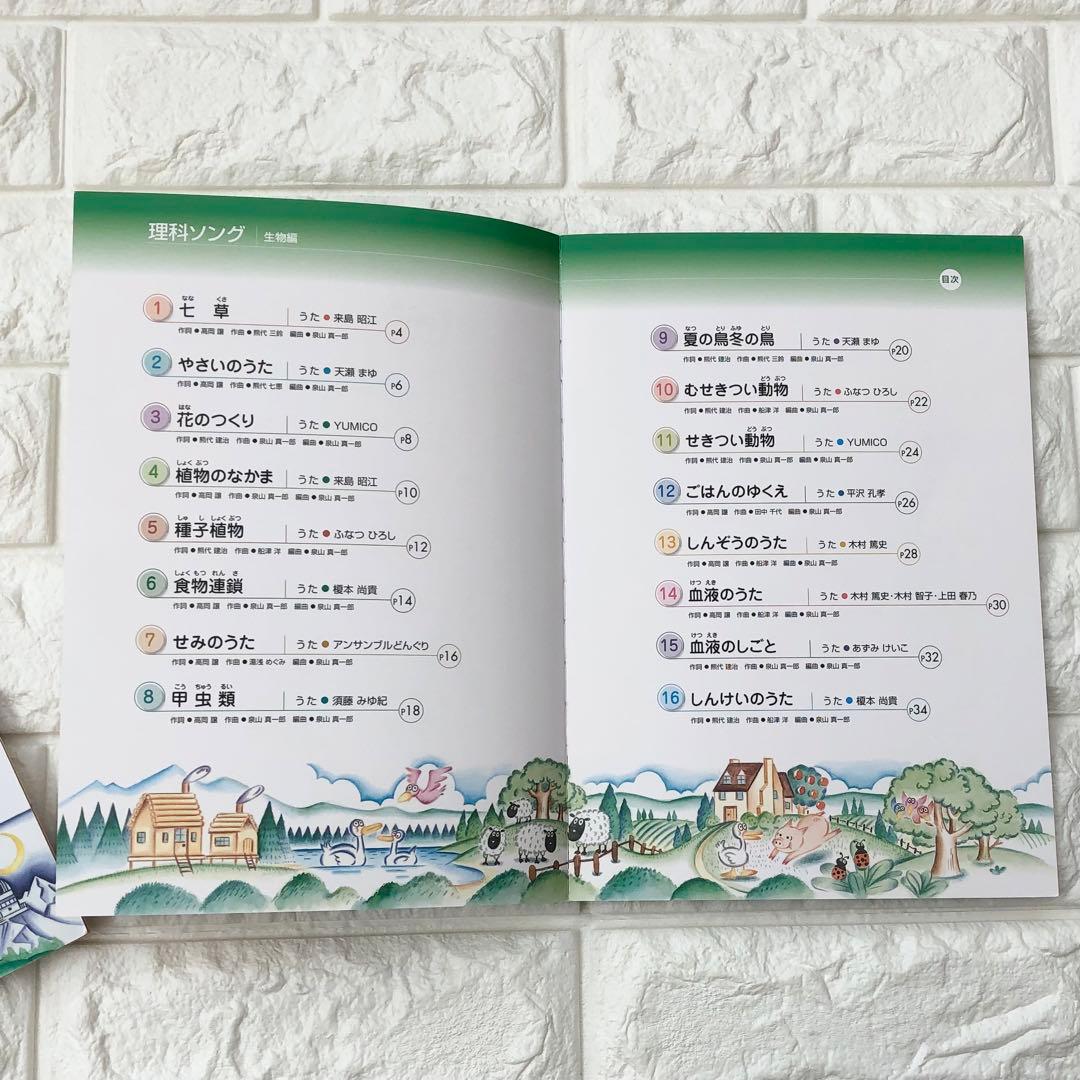 理科ソング 生物編
1 七草 うた ● 来島 昭江 P4
作詞 ● 高岡 譲 作曲 ● 熊代 三鈴 編曲 ● 泉山 真一郎
2 やさいのうた うた ● 天瀬 まゆ P6
作詞 ● 高岡 譲 作曲 ● 熊代 七恵 編曲 ● 泉山 真一郎
3 花のつくり うた ● YUMICO P8
作詞 ● 熊代 建治 作曲 ● 泉山 真一郎 編曲 ● 泉山 真一郎
4 植物のなかま うた ● 来島 昭江 P10
作詞 ● 高岡 譲 作曲 ● 泉山 真一郎 編曲 ● 泉山 真一郎
5 種子植物 うた ● ふなつ ひろし P12
作詞 ● 熊代 建治 作曲 ● 船津 洋 編曲 ● 泉山 真一郎
6 食物連鎖 うた ● 榎本 尚貴 P14
作詞 ● 高岡 譲 作曲 ● 泉山 真一郎 編曲 ● 泉山 真一郎
7 せみのうた うた ● アンサンブルどんぐり P16
作詞 ● 高岡 譲 作曲 ● 湯浅 めぐみ 編曲 ● 泉山 真一郎
8 甲虫類 うた ● 須藤 みゆ紀 P18
作詞 ● 高岡 譲 作曲 ● 泉山 真一郎 編曲 ● 泉山 真一郎
目次
9 夏の鳥冬の鳥 うた ● 天瀬 まゆ P20
作詞 ● 熊代 建治 作曲 ● 熊代 三鈴 編曲 ● 泉山 真一郎
10 むせきつい動物 うた ● ふなつ ひろし P22
作詞 ● 熊代 建治 作曲 ● 船津 洋 編曲 ● 泉山 真一郎
11 せきつい動物 うた ● YUMICO P24
作詞 ● 熊代 建治 作曲 ● 泉山 真一郎 編曲 ● 泉山 真一郎
12 ごはんのゆくえ うた ● 平沢 孔孝 P26
作詞 ● 高岡 譲 作曲 ● 田中 千代 編曲 ● 泉山 真一郎
13 しんぞうのうた うた ● 木村 篤史 P28
作詞 ● 高岡 譲 作曲 ● 船津 洋 編曲 ● 泉山 真一郎
14 血液のうた うた ● 木村 篤史・木村 智子・上田 春乃 P30
作詞 ● 高岡 譲 作曲 ● 船津 洋 編曲 ● 泉山 真一郎
15 血液のしごと うた ● あずみ けいこ P32
作詞 ● 熊代 建治 作曲 ● 泉山 真一郎 編曲 ● 泉山 真一郎
16 しんけいのうた うた ● 榎本 尚貴 P34
作詞 ● 熊代 建治 作曲 ● 船津 洋 編曲 ● 泉山 真一郎